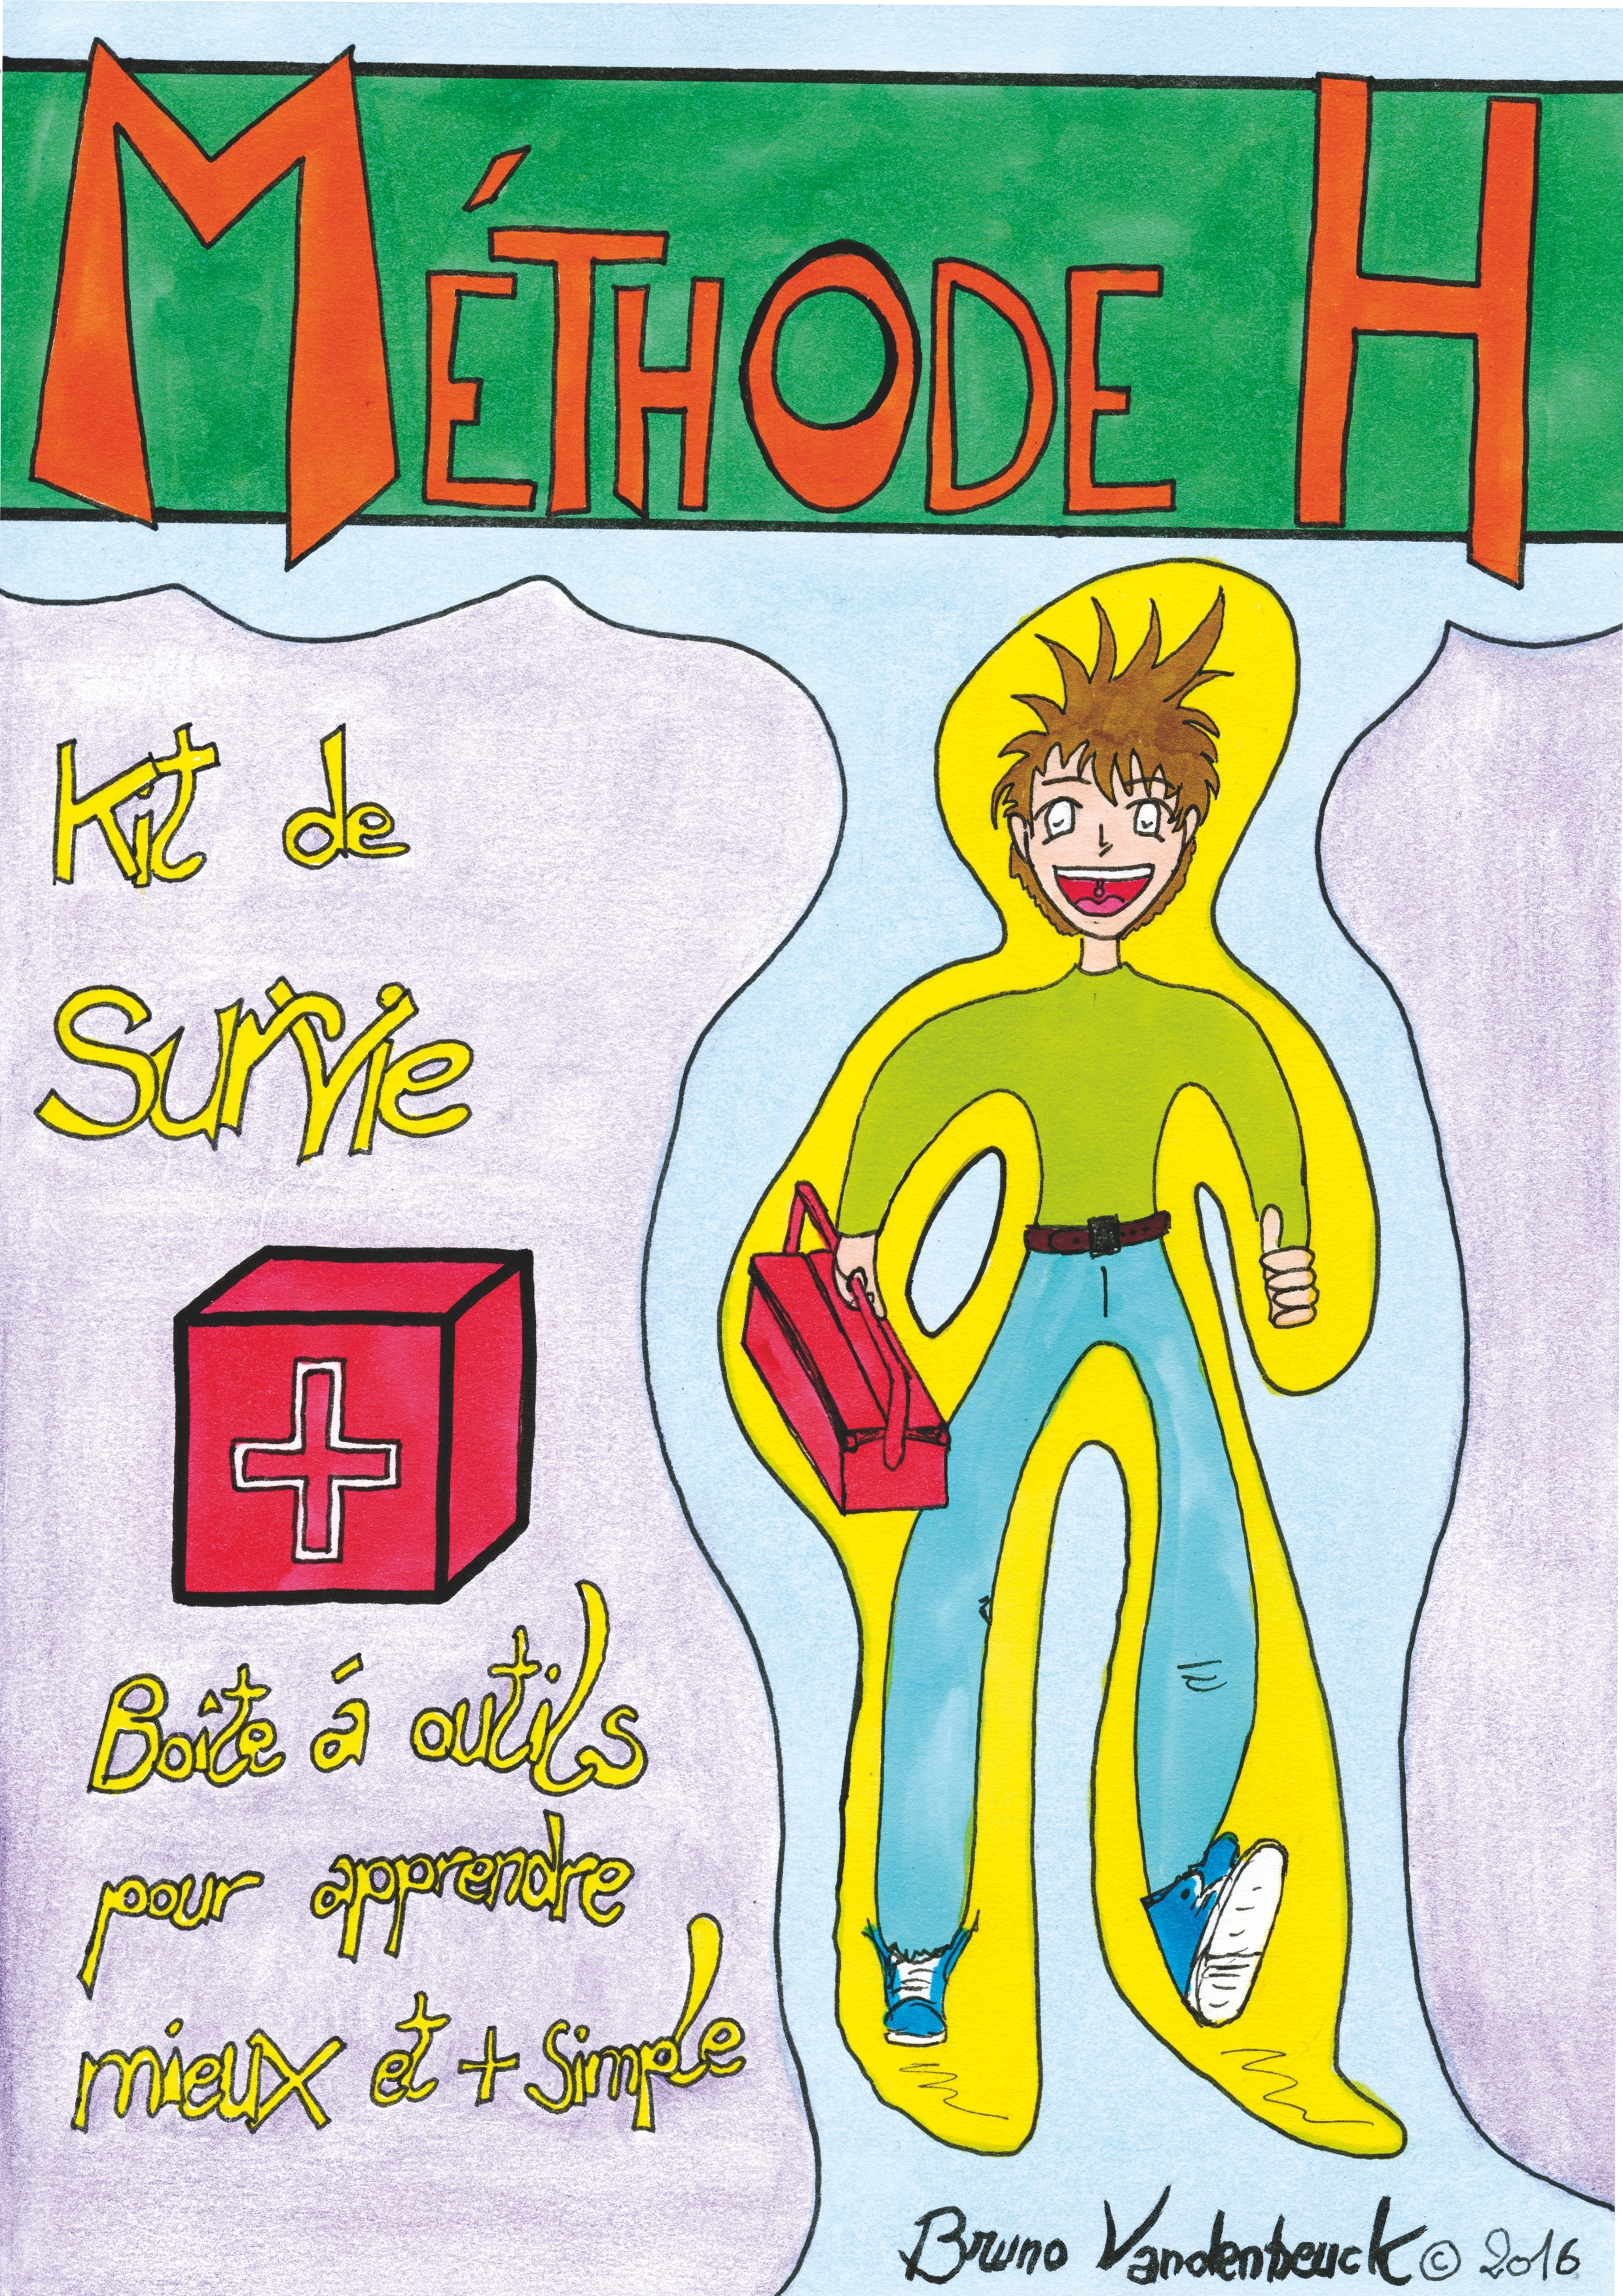 MÉTHODE H
Kit de
Survie
Boite á outils
pour apprendre
mieux et + simple
Bruno Vandenbeuck © 2016